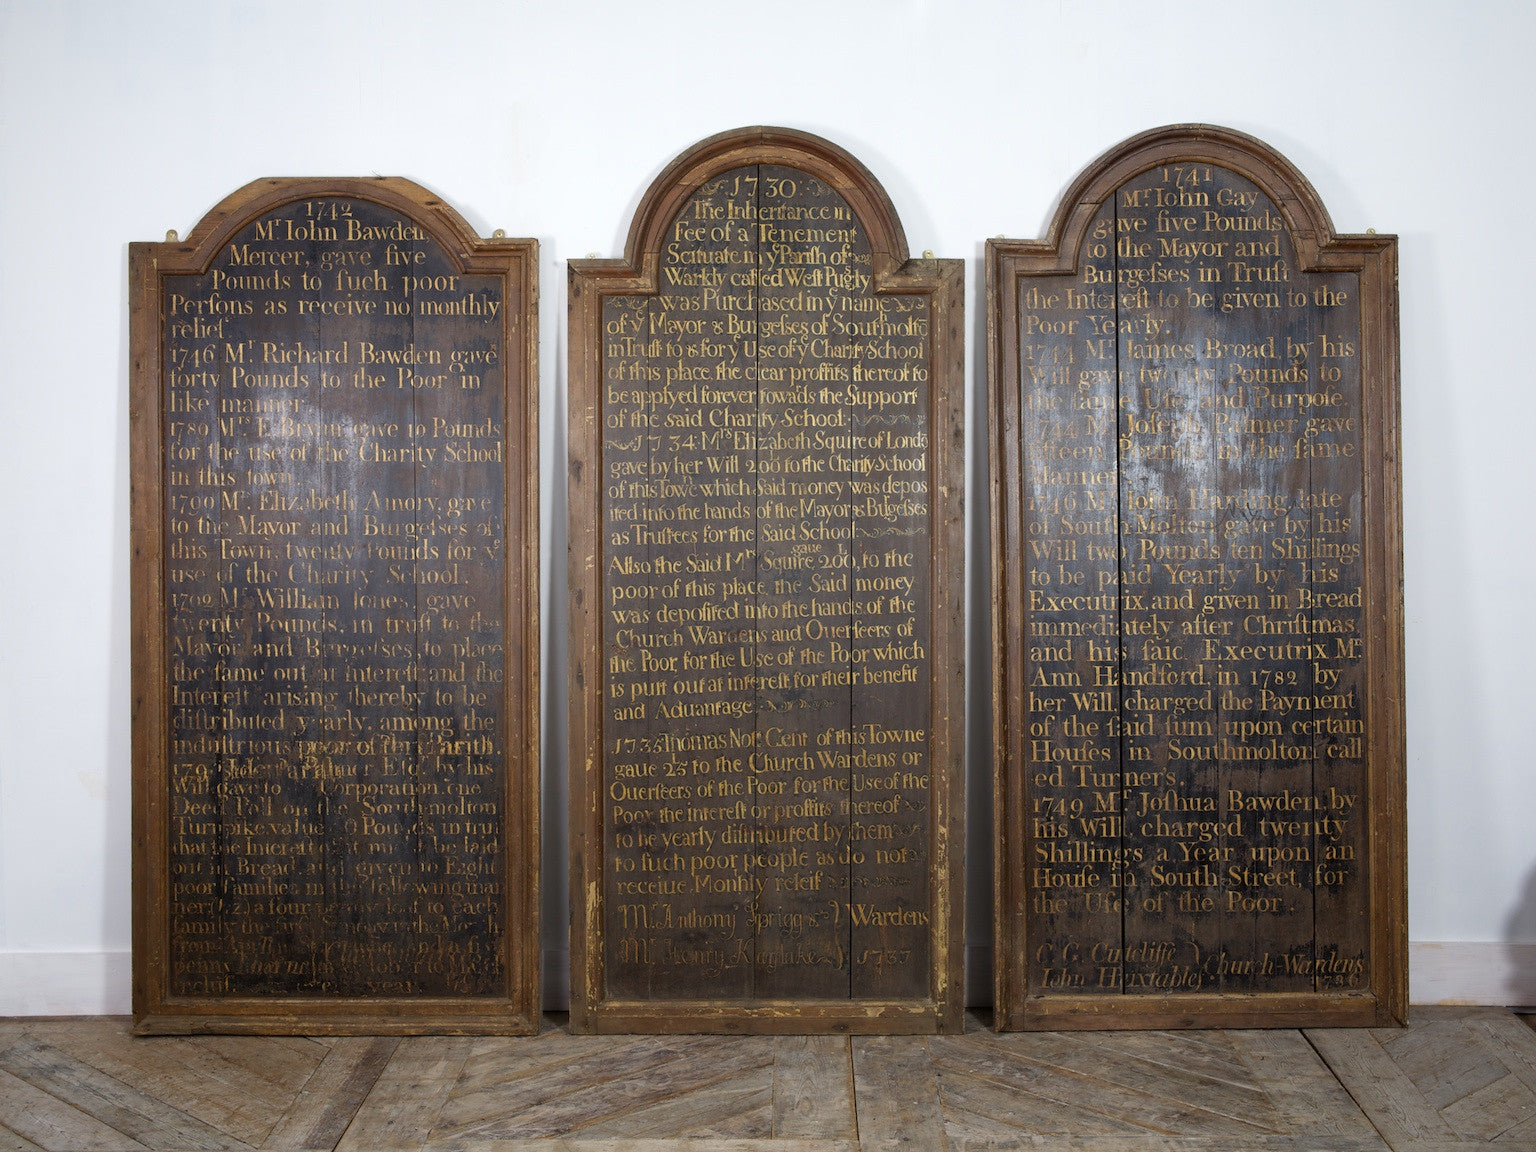 1742
Mr Iohn Bawden,
Mercer, gave five
Pounds to ſuch poor
Perſons as receive no monthly
relief
1746 Mr Richard Bawden gave
forty Pounds to the Poor in
like manner
1789 Mrs E. Bryan gave 10 Pounds
for the uſe of the Charity School
in this town
1790 Mrs Elizabeth Amory, gave
to the Mayor and Burgeſses of
this Town, twenty Pounds for ye
uſe of the Charity School.
1792 Mr William Iones, gave
twenty Pounds, in truſt to the
Mayor and Burgeſses, to place
the ſame out at intereſt and the
Intereſt arising thereby to be
diſtributed yearly, among the
induſtrious poor of this Pariſh.
Palmer by his
Will gave to Corporation, one
Deed Poll on the Southmolton
Turnpike value Pounds in truſt
that the Intereſt of it might be laid
out in Bread, and given to Eight
poor Families in the following man
ner a four penny loaf to each
family the firſt
penny
1730
The Inheritance in
Fee of a Tenement
Scituate in ye Pariſh of
Warkly called Weſt Pugſly
was Purchased in ye name
of ye Mayor & Burgeſses of Southmolto
in Truſt to & for ye Use of ye Charity School
of this place, the clear proffits thereof to
be applyed forever towards the Support
of the said Charity School.
1734: Mrs Elizabeth Squire of Londo
gave by her Will 200 to the Charity School
of this Towne which Said money was depos
ited into the hands of the Mayor & Burgeſses
as Truſtees for the Said School
Allso the Said Mrs Squire gaue 200, to the
poor of this place, the Said money
was deposited into the hands of the
Church Wardens and Ouerſeers of
the Poor, for the Use of the Poor which
is putt out at intereſt for their benefit
and Aduantage
1735 Thomas Not Gent of this Towne
gaue 25 to the Church Wardens or
Ouerſeers of the Poor for the Use of the
Poor the intereſt or proffits thereof
to be yearly diſtributed by them
to ſuch poor people as do not
receiue Monhly releif
Mr Anthony Spriggs } Wardens
Mr Henry Kayſake } 1737
1741
Mr Iohn Gay
gave five Pounds
to the Mayor and
Burgeſses in Truſt
the Intereſt to be given to the
Poor Yearly.
1744 Mr James Broad, by his
Will gave twenty Pounds to
the ſame Uſe and Purpoſe
1744 Mr Joſeph Palmer gave
fifteen Pounds in the ſame
Manner
1746 Mr Iohn Harding late
of South Molton gave by his
Will two Pounds ten Shillings
to be paid Yearly by his
Executrix, and given in Bread
immediately after Chriſtmas,
and his ſaid Executrix Mrs
Ann Handford, in 1782 by
her Will, charged the Payment
of the ſaid ſum upon certain
Houſes in Southmolton call
ed Turners
1749 Mr Joſhua Bawden, by
his Will, charged twenty
Shillings a Year upon an
Houſe in South-Street, for
the Uſe of the Poor.
C. G. Cutcliffe }
Iohn Huxtable } Church-Wardens